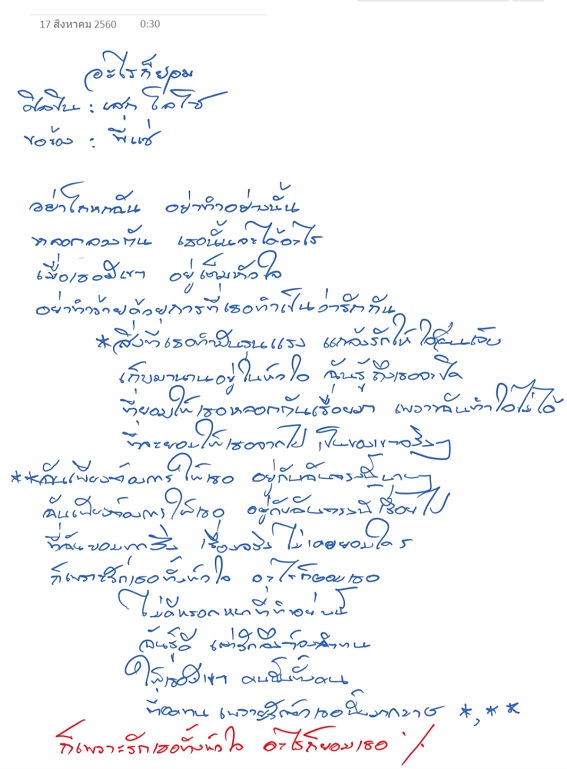 17 สิงหาคม 2560 0:30
อะไรก็ยอม
ศิลปิน : เสก โลโซ
ขอร้อง : พี่แซ่
อย่าโกหกฉัน อย่าทำอย่างนั้น
หลอกลวงกัน เธอนั้นจะได้อะไร
เมื่อเธอมีเขา อยู่เต็มหัวใจ
อย่าทำร้ายด้วยการที่เธอทำเป็นว่ารักกัน
*สิ่งที่เธอทำมันรุนแรง แกล้งรักให้ ได้ฉันเจ็บ
เก็บมานานอยู่ในหัวใจ ฉันรู้ถึงเธอจะปิด
ที่ยอมให้เธอหลอกกันเรื่อยมา เพราะฉันทำใจไม่ได้
ที่จะยอมให้เธอจากไป เป็นของเขาจริงๆ
**ฉันเพียงต้องการให้เธอ อยู่กับฉันตรงนี้นานๆ
ฉันเพียงต้องการให้เธอ อยู่กับฉันตรงนี้เรื่อยไป
ที่ฉันยอมทุกสิ่ง เรื่องจริงไม่เคยยอมใคร
ก็เพราะรักเธอทั้งหัวใจ อะไรก็ยอมเธอ
ไม่ดีหรอกหนาที่ทำอย่างนี้
ฉันรู้ดี แต่รักจึงต้องจำทน
ให้เธอมีเขา คนนั้นทั้งคน
ที่อดทน เพราะรักเธอนั้นมากมาย *,**
ก็เพราะรักเธอทั้งหัวใจ อะไรก็ยอมเธอ